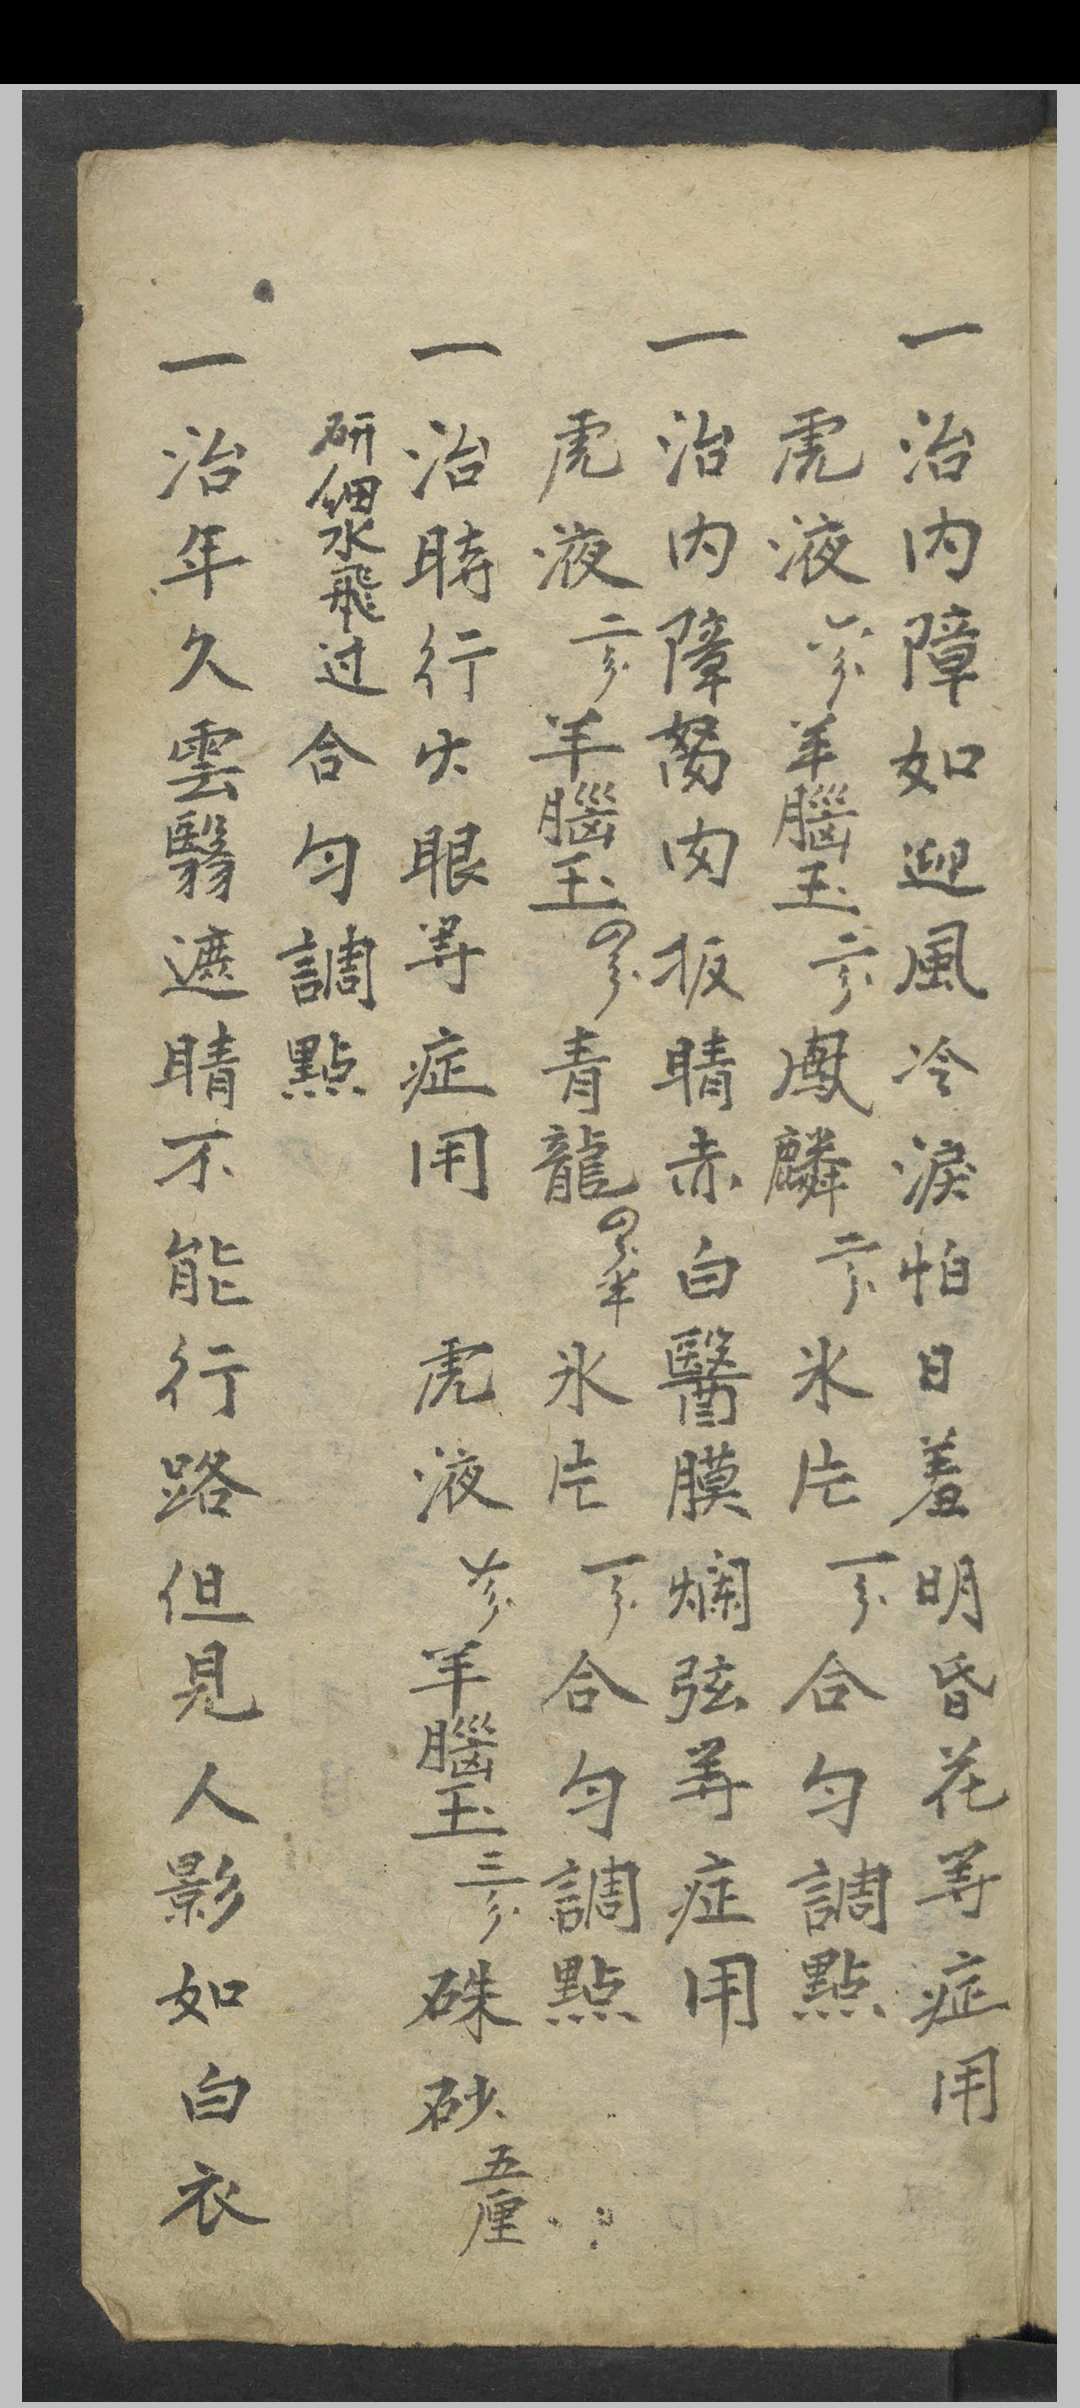 一治内障如迎風冷淚怕日羞明昏花等症用
虎液六分羊腦玉二分鳳麟二分氷片一分合勻調點
一治内障胬肉扳睛赤白醫膜爛弦等症用
虎液二分羊腦玉四分青龍四分半氷片一分合勻調點
一治時行火眼等症用　虎液六分羊腦玉三分硃砂五厘
研細水飛过合勻調點
一治年久雲翳遮睛不能行路但見人影如白衣